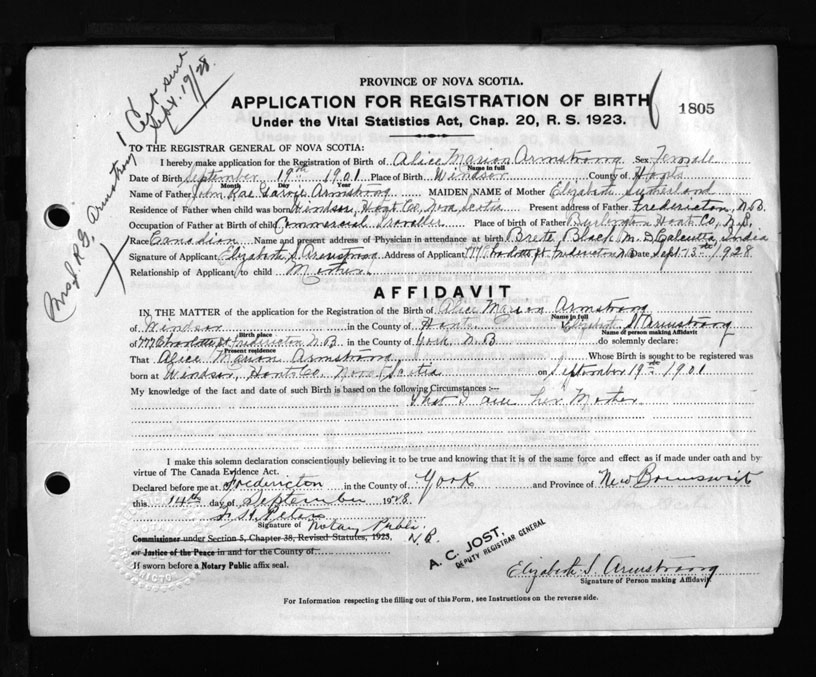 1 Cert sent
Sept. 19/28.
Mrs J. R. G. Armstrong
PROVINCE OF NOVA SCOTIA.
APPLICATION FOR REGISTRATION OF BIRTH
1805
Under the Vital Statistics Act, Chap. 20, R. S. 1923.
TO THE REGISTRAR GENERAL OF NOVA SCOTIA:
I hereby make application for the Registration of Birth of Alice Marion Armstrong Sex Female
Name in full
Date of Birth September 19th 1901 Place of Birth Windsor County of Hants
Month Day Year
Name of Father John Rae Garvie Armstrong MAIDEN NAME of Mother Elizabeth Sutherland
Residence of Father when child was born Windsor, Hants Co, Nova Scotia Present address of Father Fredericton, N.B.
Occupation of Father at Birth of child Commercial Traveller Place of birth of Father Burlington Hants Co, N.S.
Race Canadian Name and present address of Physician in attendance at birth Black M.D. Calcutta, India
Signature of Applicant Elizabeth S. Armstrong Address of Applicant Charlotte St Fredericton N.B Date Sept 13th 1928
Relationship of Applicant to child Mother.
AFFIDAVIT
IN THE MATTER of the application for the Registration of Birth of Alice Marion Armstrong
Name in full
of Windsor in the County of Hants. Elizabeth S Armstrong
Birth place Name of person making Affidavit
of Charlotte St Fredericton N.B. in the County of York, N.B do solemnly declare:
Present residence
That Alice Marion Armstrong Whose Birth is sought to be registered was
born at Windsor, Hants Co. Nova Scotia on September 19th 1901
My knowledge of the fact and date of such Birth is based on the following Circumstances :—
That I am her Mother
I make this solemn declaration conscientiously believing it to be true and knowing that it is of the same force and effect as if made under oath and by
virtue of The Canada Evidence Act.
Declared before me at Fredericton in the County of York and Province of New Brunswick
this 14th day of September 1928.
Peters
Signature of Notary Public
Commissioner under Section 5, Chapter 38, Revised Statutes, 1923, N.B.
or Justice of the Peace in and for the County of
If sworn before a Notary Public affix seal.
A. C. JOST,
DEPUTY REGISTRAR GENERAL
Elizabeth S. Armstrong
Signature of Person making Affidavit.
For Information respecting the filling out of this Form, see Instructions on the reverse side.